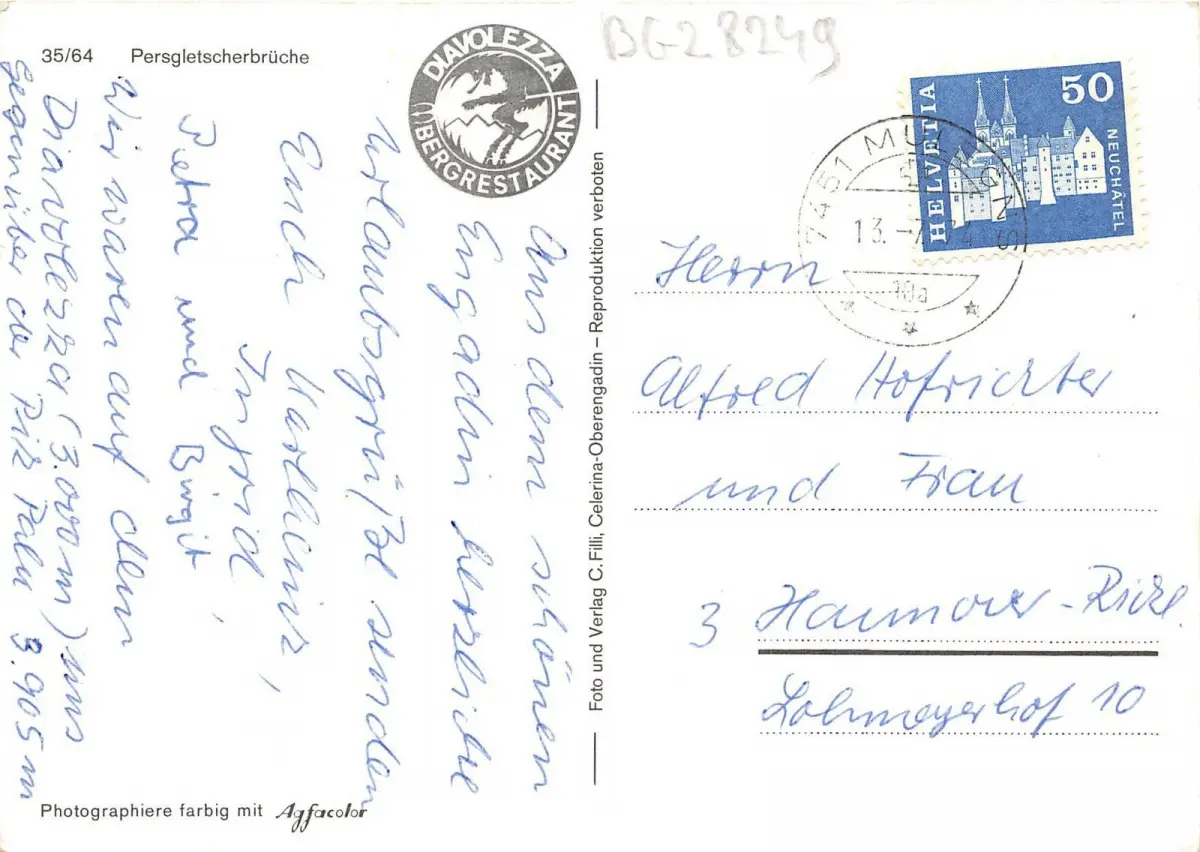 35/64 Persgletscherbrüche
DIAVOLEZZA
BERGRESTAURANT
BG28249
HELVETIA
50
NEUCHÂTEL
7451
13.-7.
10a
Aus dem schönen
Engadin herzliche
Urlaubsgrüße senden
Euch Karlheinz,
Ingrid,
Petra und Birgit
Wir waren auf dem
Diavolezza (3.000 m) uns
gegenüber der Piz Palu 3.905 m
Foto und Verlag C. Filli, Celerina-Oberengadin – Reproduktion verboten
Herrn
Alfred Hofrichter
und Frau
3 Hannover-
Lohmeyerhof 10
Photographiere farbig mit Agfacolor